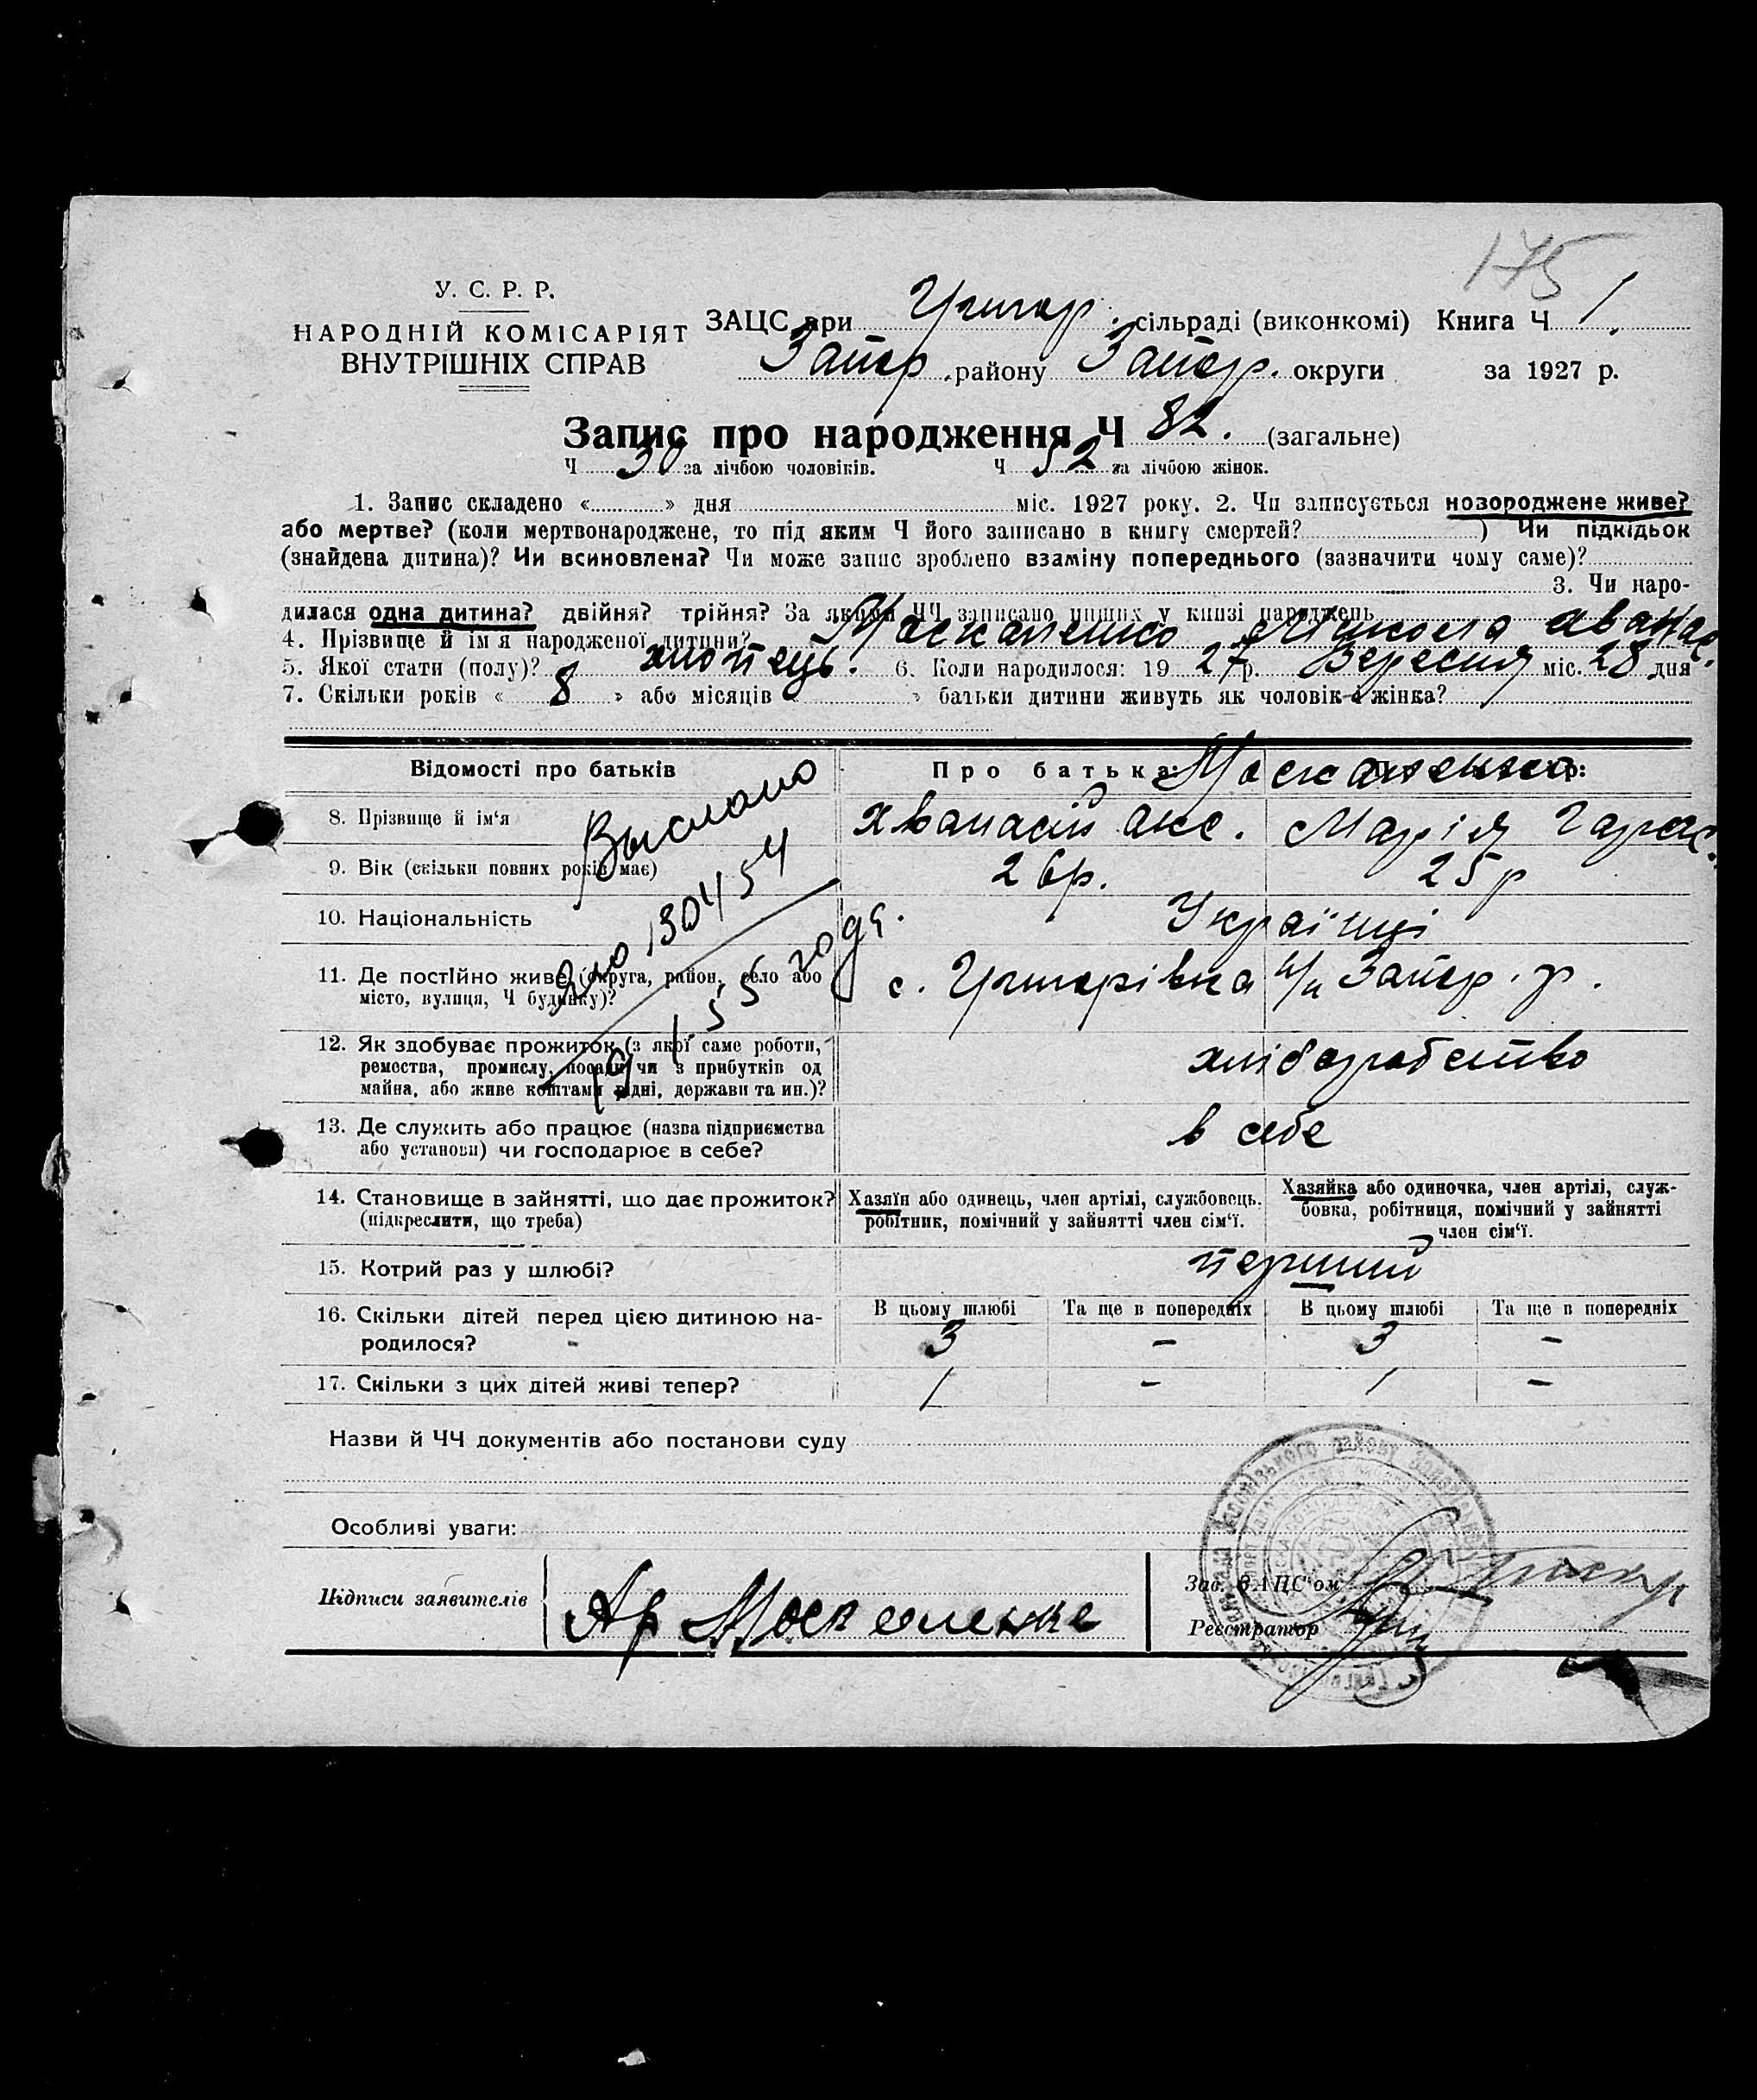 175
У. С. Р. Р.
НАРОДНІЙ КОМІСАРІЯТ
ВНУТРІШНІХ СПРАВ
ЗАЦС при Григор. сільраді (виконкомі) Книга Ч 1.
Запор. району Запор. округи за 1927 р.
Запис про народження Ч 82. (загальне)
Ч 30 за лічбою чоловіків. Ч 52 за лічбою жінок.
1. Запис складено « » дня міс. 1927 року. 2. Чи записується новороджене живе?
або мертве? (коли мертвонароджене, то під яким Ч його записано в книгу смертей? ) Чи підкідьок
(знайдена дитина)? Чи всиновлена? Чи може запис зроблено взаміну попереднього (зазначити чому саме)?
3. Чи наро-
дилася одна дитина? двійня? трійня? За якими ЧЧ записано инших у книзі народжень
4. Прізвище й ім'я народженої дитини? Москаленко Микола Аванас.
5. Якої стати (полу)? хлопець. 6. Коли народилося: 1927 р. Вересня міс. 28 дня
7. Скільки років « 8 » або місяців « » батьки дитини живуть як чоловік і жінка?
Відомості про батьків Про батька: Москаленко
8. Прізвище й ім'я Хванасій Макс. Марія Гарас.
9. Вік (скільки повних років має) 26р. 25р
10. Національність Українці
11. Де постійно живе (округа, район, село або
місто, вулиця, Ч будинку)? с. Григорівка ц/н Запор. р.
12. Як здобуває прожиток (з якої саме роботи,
ремества, промислу, посади чи з прибутків од
майна, або живе коштами рідні, держави та ин.)? хліборобство
13. Де служить або працює (назва підприємства
або установи) чи господарює в себе? в себе
14. Становище в зайнятті, що дає прожиток?
(підкреслити, що треба)
Хазяїн або одинець, член артілі, службовець.
робітник, помічний у зайнятті член сім'ї.
Хазяйка або одиночка, член артілі, служ-
бовка, робітниця, помічний у зайнятті
член сім'ї.
15. Котрий раз у шлюбі? перший
16. Скільки дітей перед цією дитиною на-
родилося?
В цьому шлюбі Та ще в попередніх В цьому шлюбі Та ще в попередніх
3 – 3 –
17. Скільки з цих дітей живі тепер? 1 – 1 –
Выслано
130454
1955 года.
Назви й ЧЧ документів або постанови суду
Особливі уваги:
Підписи заявителів Ар Москаленко
Зав. ЗАЦС'ом
Реєстратор